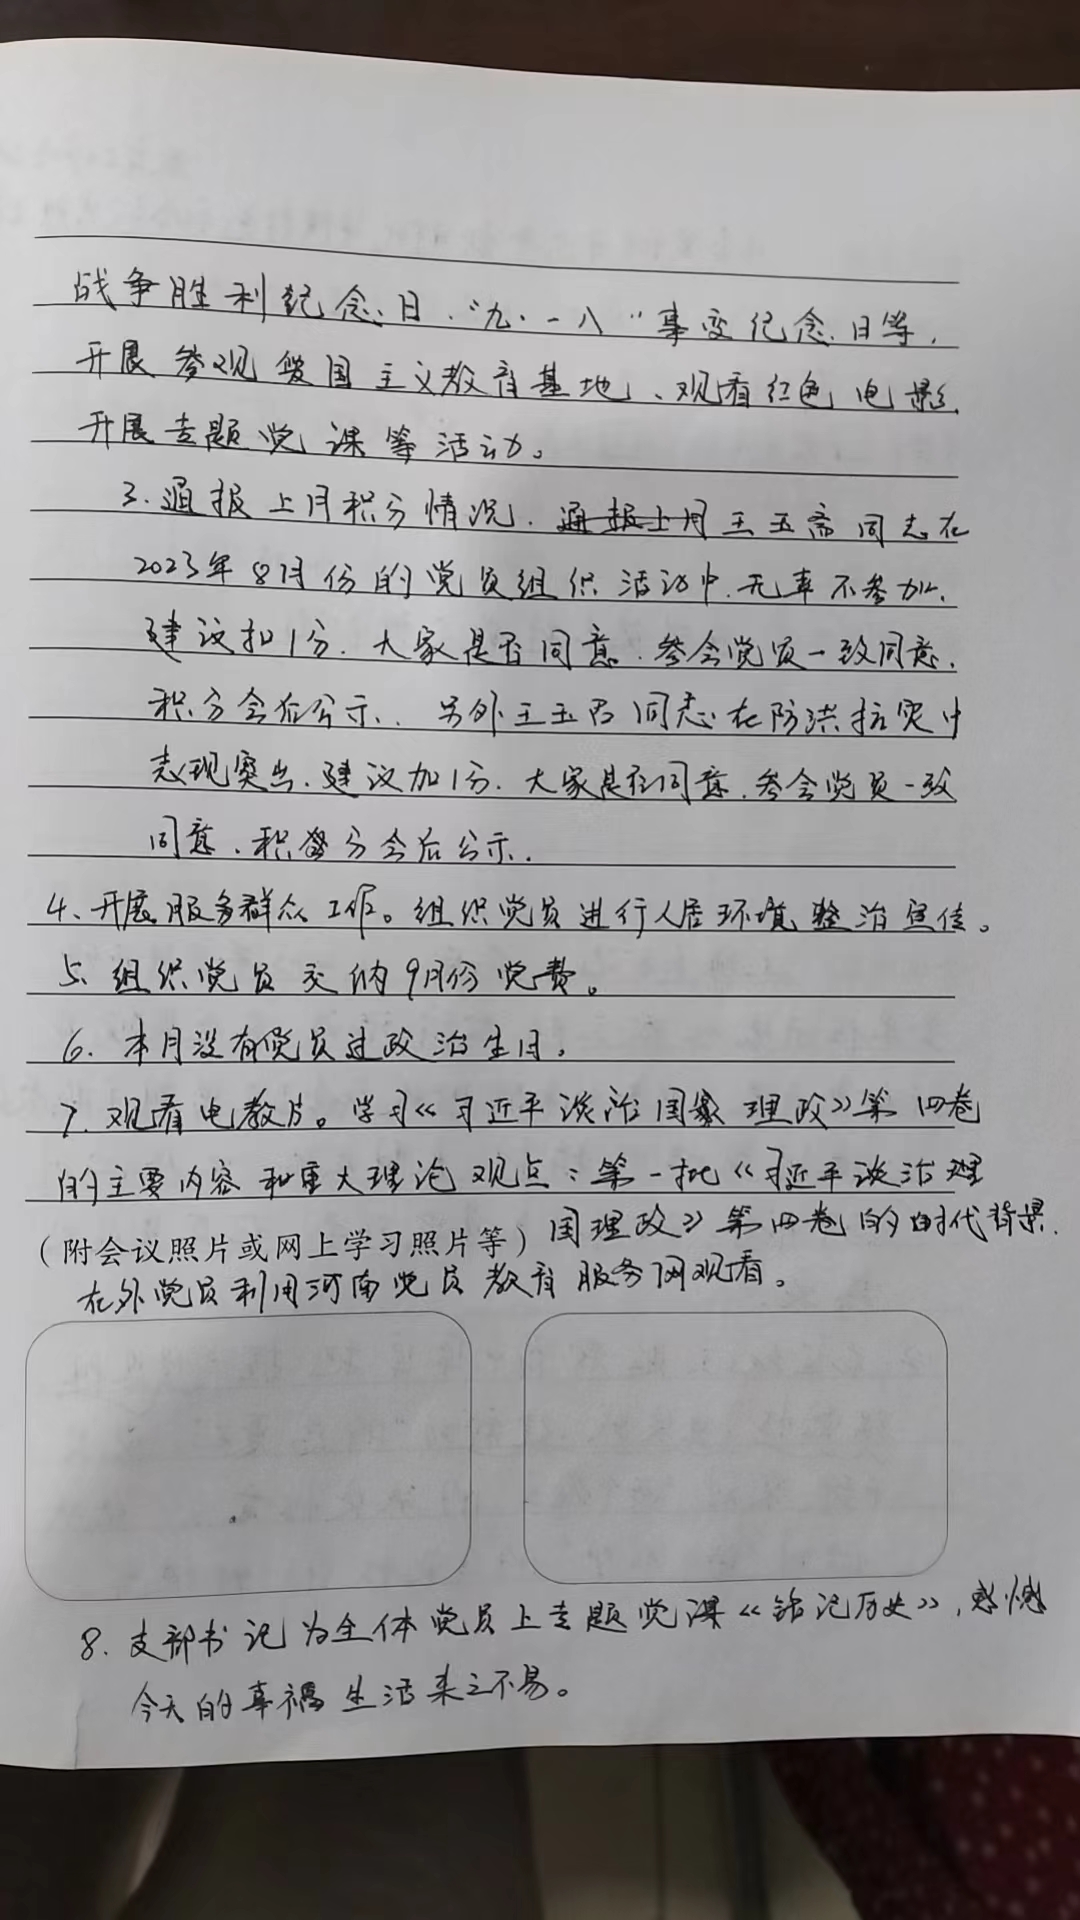 战争胜利纪念日、“九·一八”事变纪念日等，
开展参观爱国主义教育基地、观看红色电影
开展专题党课等活动。
3.通报上月积分情况.通报上月王玉斋同志在
2023年8月份的党员组织活动中.无事不参加.
建议扣1分.大家是否同意.参会党员一致同意.
积分会后公示.另外王玉君同志在防洪抗灾中
表现突出.建议加1分.大家是否同意.参会党员一致
同意.积分会后公示.
4、开展服务群众工作。组织党员进行人居环境整治宣传。
5、组织党员交纳9月份党费。
6.本月没有党员过政治生日。
7.观看电教片。学习《习近平谈治国家理政》第四卷
的主要内容和重大理论观点：第一批《习近平谈治理
国理政》第四卷的时代背景.
（附会议照片或网上学习照片等）
在外党员利用河南党员教育服务网观看。
8.支部书记为全体党员上专题党课《铭记历史》，感憾
今天的幸福生活来之不易。